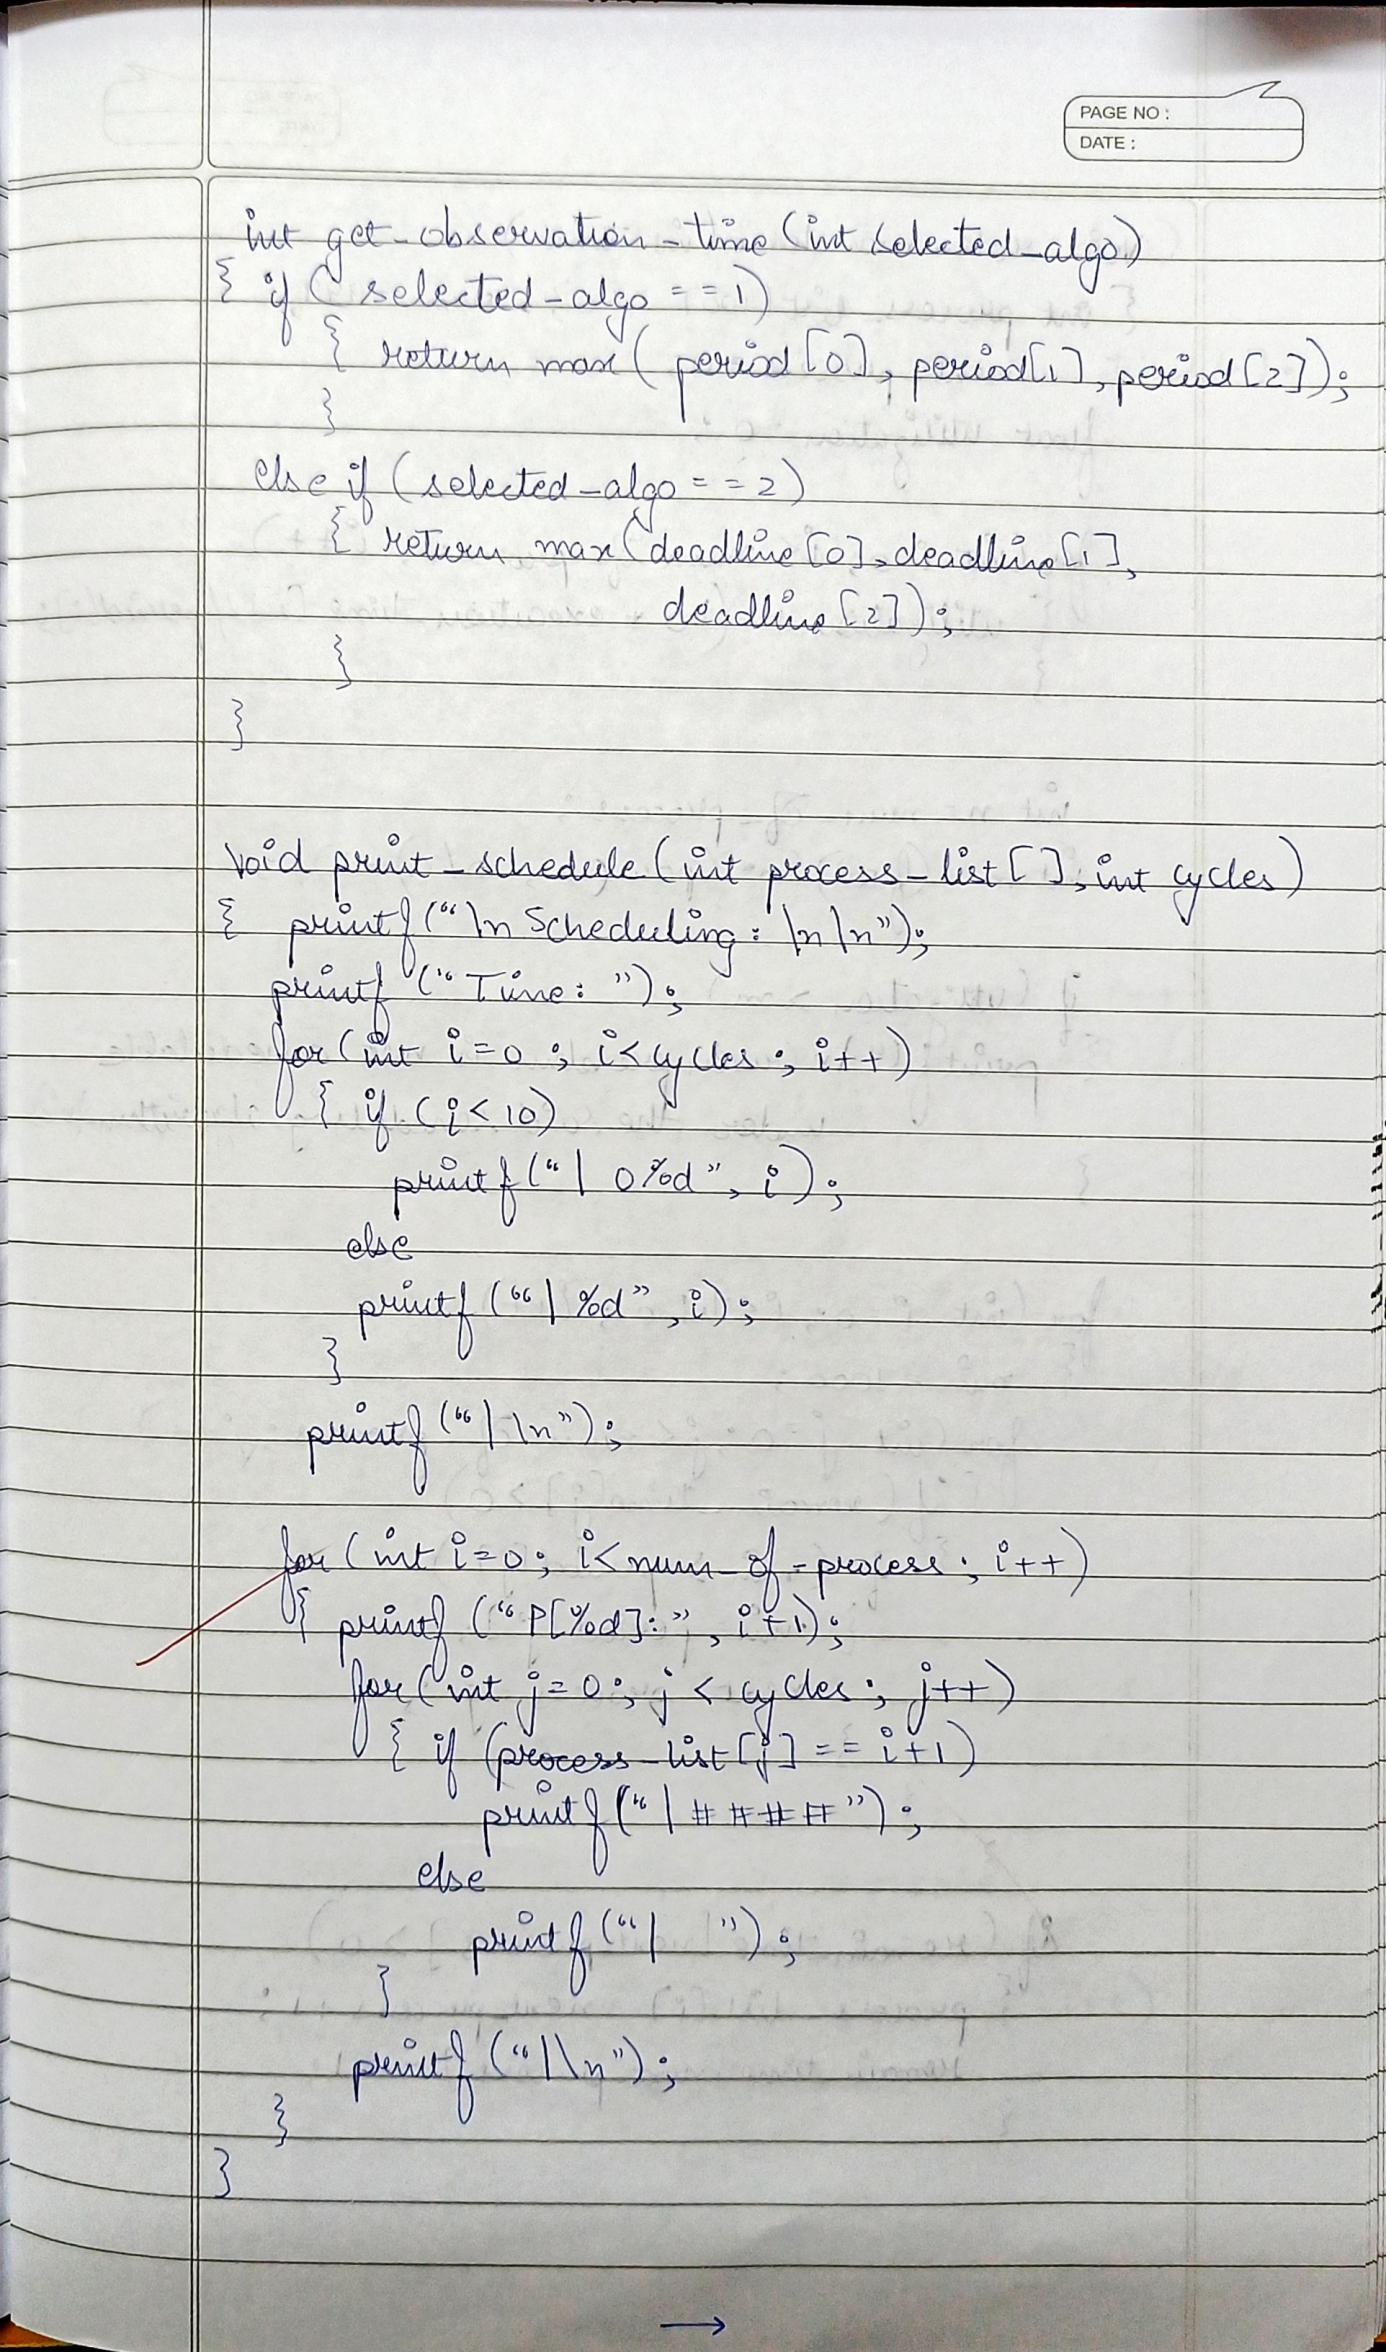 PAGE NO :
DATE :
int get_observation_time (int selected_algo)
{ if ( selected_algo == 1)
{ return max( period [0], period[1], period [2]);
}
else if (selected_algo == 2)
{ return max(deadline [0], deadline [1],
deadline [2]);
}
}
void print_schedule (int process_list [ ], int cycles)
{ printf ("\n Scheduling: \n\n");
printf ("Time: ");
for (int i=0 ; i<cycles ; i++)
{ if (i<10)
printf ("| 0%d", i);
else
printf ("| %d", i);
}
printf ("| \n");
for (int i=0; i<num_of_process; i++)
{ printf ("P[%d]:", i+1);
for (int j=0; j < cycles; j++)
{ if (process_list [j] == i+1)
printf ("| ####");
else
printf ("|    ");
}
printf ("|\n");
}
}
→